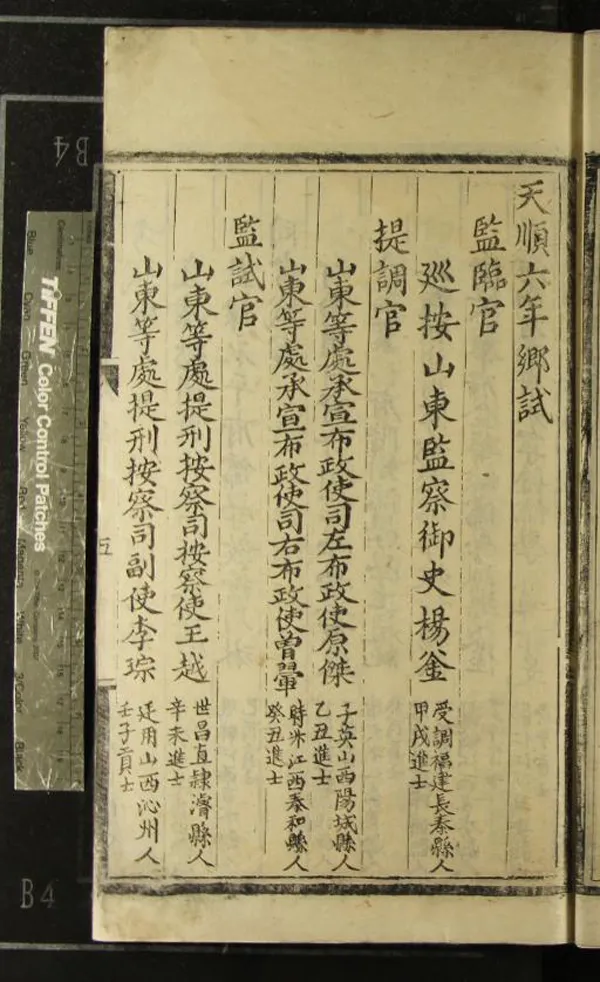 天順六年鄉試
監臨官
廵按山東監察御史楊釜
受調福建長泰縣人
甲戌進士
提調官
山東等處承宣布政使司左布政使原傑
子英山西陽城縣人
乙丑進士
山東等處承宣布政使司右布政使曾翬
時升江西泰和縣人
癸丑進士
監試官
山東等處提刑按察司按察使王越
世昌直隸濬縣人
辛未進士
山東等處提刑按察司副使李琮
廷用山西沁州人
壬子貢士
五
B4
B4
TIFFEN Color Control Patches
Blue
Cyan
Green
Yellow
Red
Magenta
White
3/Color
Black
Centimetres